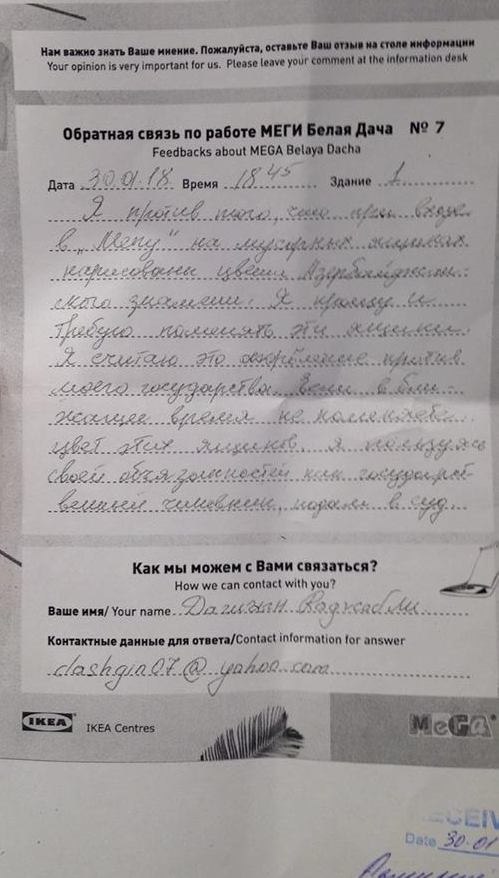 Нам важно знать Ваше мнение. Пожалуйста, оставьте Ваш отзыв на столе информации
Your opinion is very important for us. Please leave your comment at the information desk
Обратная связь по работе МЕГИ Белая Дача № 7
Feedbacks about MEGA Belaya Dacha
Дата 30.01.18 Время 18 45 Здание 1
Я против того, что при входе
в "Мегу" на мусорных ящиках
нарисованы цвета Азербайджан-
ского знамени. Я прошу и
требую поменять эти ящики.
Я считаю это оскорбление против
моего государства. Если в бли-
жащее время не поменяете
цвет этих ящиков, я пользуясь
своей обязанностей как государст-
венный чиновник, подам в суд.
Как мы можем с Вами связаться?
How we can contact with you?
Ваше имя/ Your name Дашгин Раджабли
Контактные данные для ответа/Contact information for answer
dashgin07@yahoo.com
IKEA IKEA Centres MEGA
RECEIV
Date 30.01